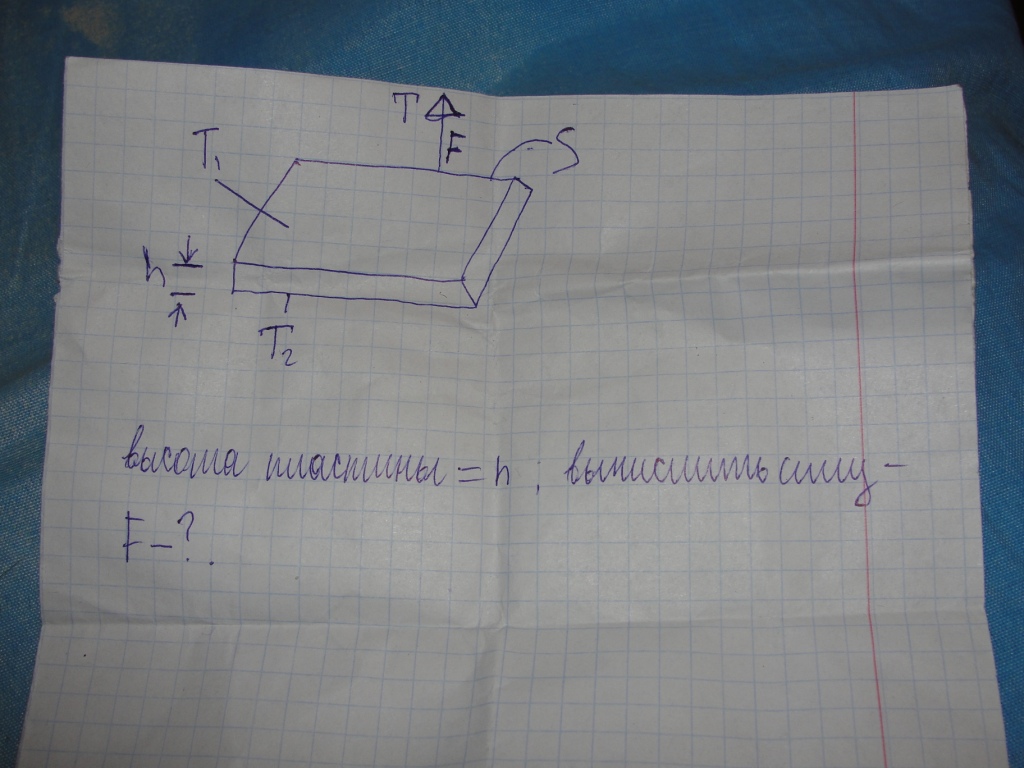 T
F
S
T₁
h
T₂
высота пластины = h ; вычислить силу –
F – ?.